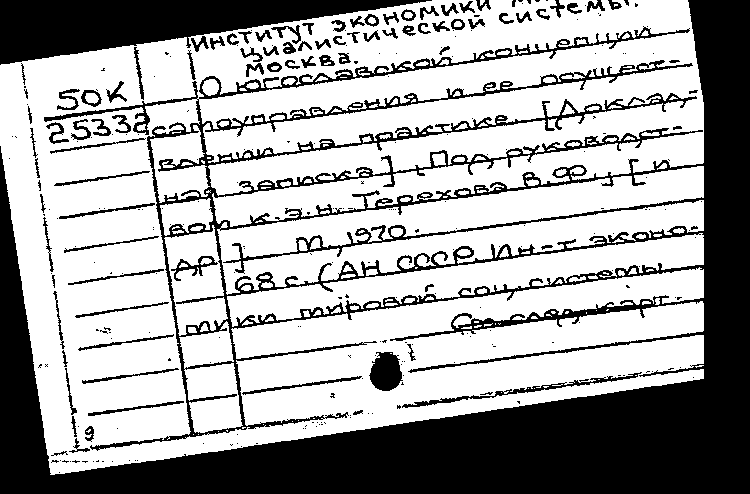 ИНСТИТУТ ЭКОНОМИКИ
ЦИАЛИСТИЧЕСКОЙ СИСТЕМЫ.
МОСКВА.
50К
25332
О югославской концепции
самоуправления и ее осущест-
влении на практике. [Доклад-
ная записка]. Под руководст-
вом к.э.н. Терехова В.Ф., [и
др]. М., 1970.
68 с. (АН СССР. Ин-т эконо-
мики мировой соц. системы
См. след. карт.
9